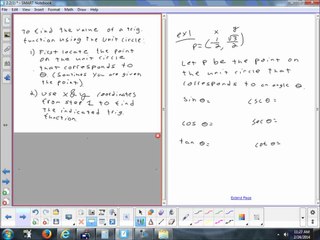 To find the value of a trig
function using the unit circle:
1) First locate the point
on the unit circle
that corresponds to
θ (Sometimes you are given
the point).
2) use x & y coordinates
from step 1 to find
the indicated trig
function.
ex1
x y
P=(-1/2, √3/2)
Let P be the point on
the unit circle that
corresponds to an angle θ.
sin θ=
csc θ=
cos θ=
sec θ=
tan θ=
cot θ=
Extend Page
11:22 AM
2/26/2014